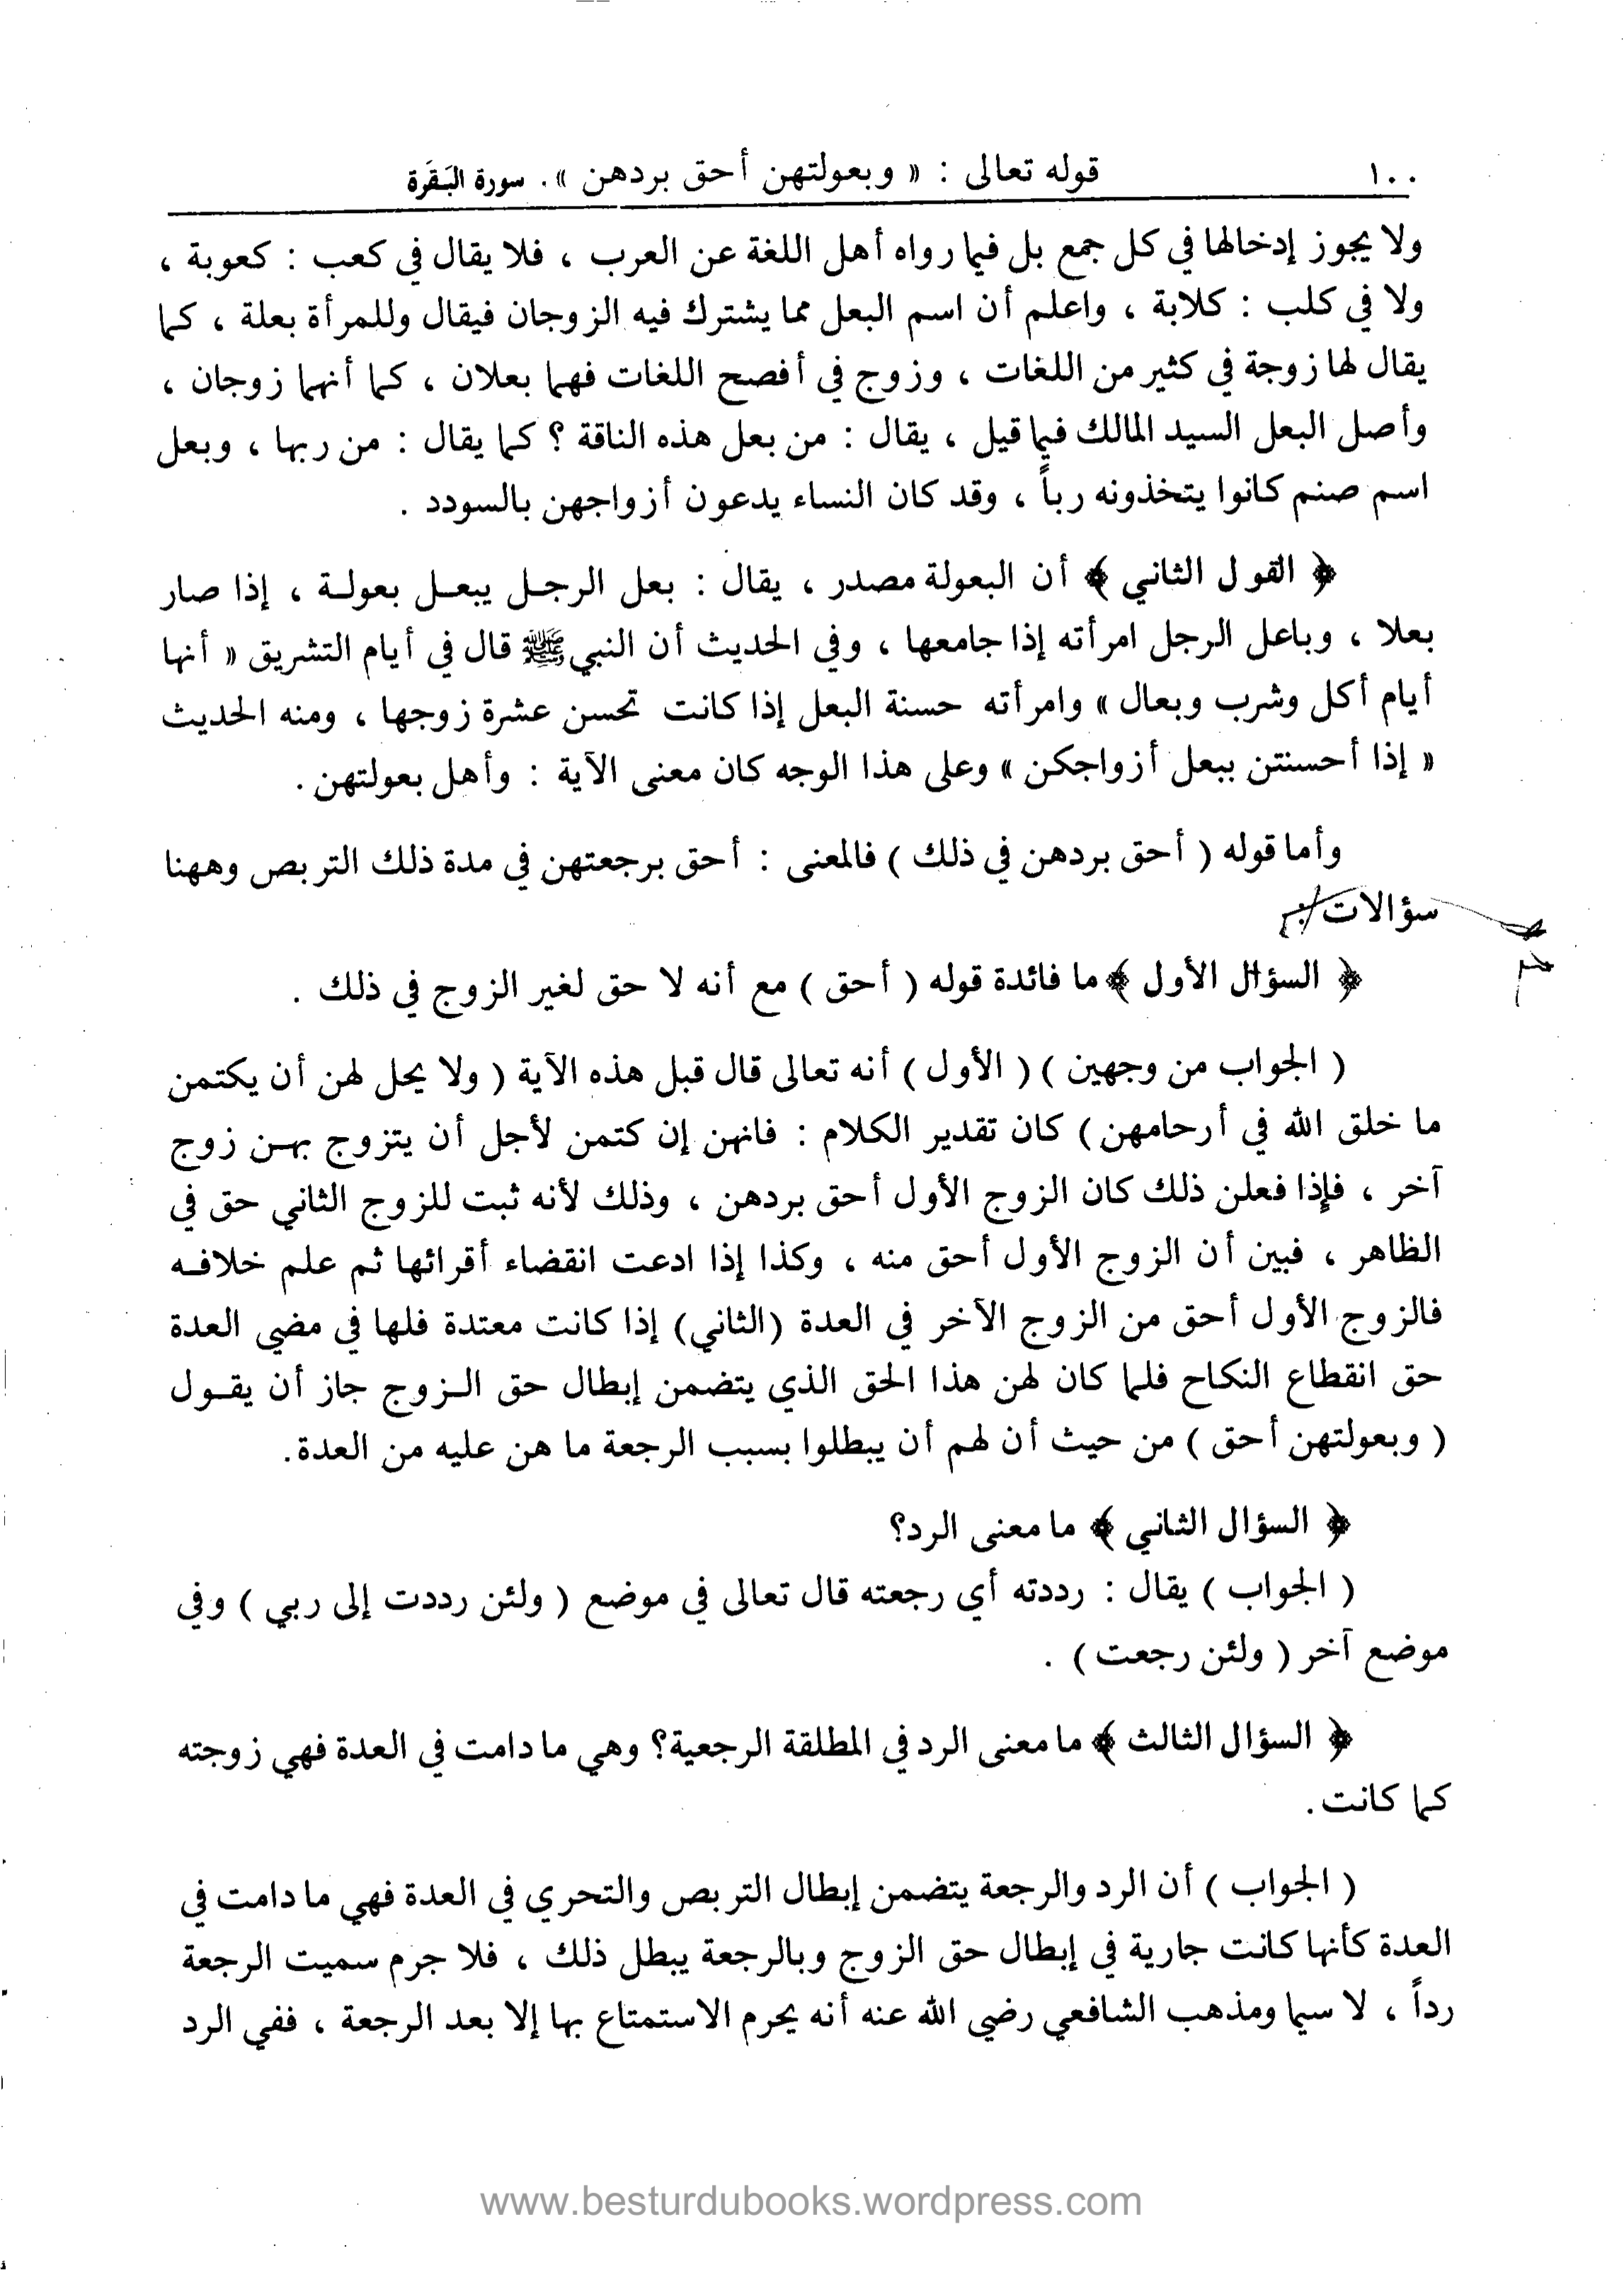 ١٠٠ قوله تعالى : « وبعولتهن أحق بردهن » . سورة البَقَرة
ولا يجوز إدخالها في كل جمع بل فيما رواه أهل اللغة عن العرب ، فلا يقال في كعب : كعوبة ،
ولا في كلب : كلابة ، واعلم أن اسم البعل مما يشترك فيه الزوجان فيقال وللمرأة بعلة ، كما
يقال لها زوجة في كثير من اللغات ، وزوج في أفصح اللغات فهما بعلان ، كما أنهما زوجان ،
وأصل البعل السيد المالك فيما قيل ، يقال : من بعل هذه الناقة ؟ كما يقال : من ربها ، وبعل
اسم صنم كانوا يتخذونه رباً ، وقد كان النساء يدعون أزواجهن بالسودد .
﴿ القول الثاني ﴾ أن البعولة مصدر ، يقال : بعل الرجل يبعل بعولة ، إذا صار
بعلا ، وباعل الرجل امرأته إذا جامعها ، وفي الحديث أن النبي ﷺ قال في أيام التشريق « أنها
أيام أكل وشرب وبعال » وامرأته حسنة البعل إذا كانت تحسن عشرة زوجها ، ومنه الحديث
« إذا أحسنتن ببعل أزواجكن » وعلى هذا الوجه كان معنى الآية : وأهل بعولتهن .
وأما قوله ( أحق بردهن في ذلك ) فالمعنى : أحق برجعتهن في مدة ذلك التربص وههنا
سؤالات
﴿ السؤال الأول ﴾ ما فائدة قوله ( أحق ) مع أنه لا حق لغير الزوج في ذلك .
( الجواب من وجهين ) ( الأول ) أنه تعالى قال قبل هذه الآية ( ولا يحل لهن أن يكتمن
ما خلق الله في أرحامهن ) كان تقدير الكلام : فانهن إن كتمن لأجل أن يتزوج بهن زوج
آخر ، فإذا فعلن ذلك كان الزوج الأول أحق بردهن ، وذلك لأنه ثبت للزوج الثاني حق في
الظاهر ، فبين أن الزوج الأول أحق منه ، وكذا إذا ادعت انقضاء أقرائها ثم علم خلافه
فالزوج الأول أحق من الزوج الآخر في العدة (الثاني) إذا كانت معتدة فلها في مضي العدة
حق انقطاع النكاح فلما كان لهن هذا الحق الذي يتضمن إبطال حق الزوج جاز أن يقول
( وبعولتهن أحق ) من حيث أن لهم أن يبطلوا بسبب الرجعة ما هن عليه من العدة.
﴿ السؤال الثاني ﴾ ما معنى الرد؟
( الجواب ) يقال : رددته أي رجعته قال تعالى في موضع ( ولئن رددت إلى ربي ) وفي
موضع آخر ( ولئن رجعت ) .
﴿ السؤال الثالث ﴾ ما معنى الرد في المطلقة الرجعية؟ وهي ما دامت في العدة فهي زوجته
كما كانت.
( الجواب ) أن الرد والرجعة يتضمن إبطال التربص والتحري في العدة فهي ما دامت في
العدة كأنها كانت جارية في إبطال حق الزوج وبالرجعة يبطل ذلك ، فلا جرم سميت الرجعة
رداً ، لا سيما ومذهب الشافعي رضي الله عنه أنه يحرم الاستمتاع بها إلا بعد الرجعة ، ففي الرد
www.besturdubooks.wordpress.com